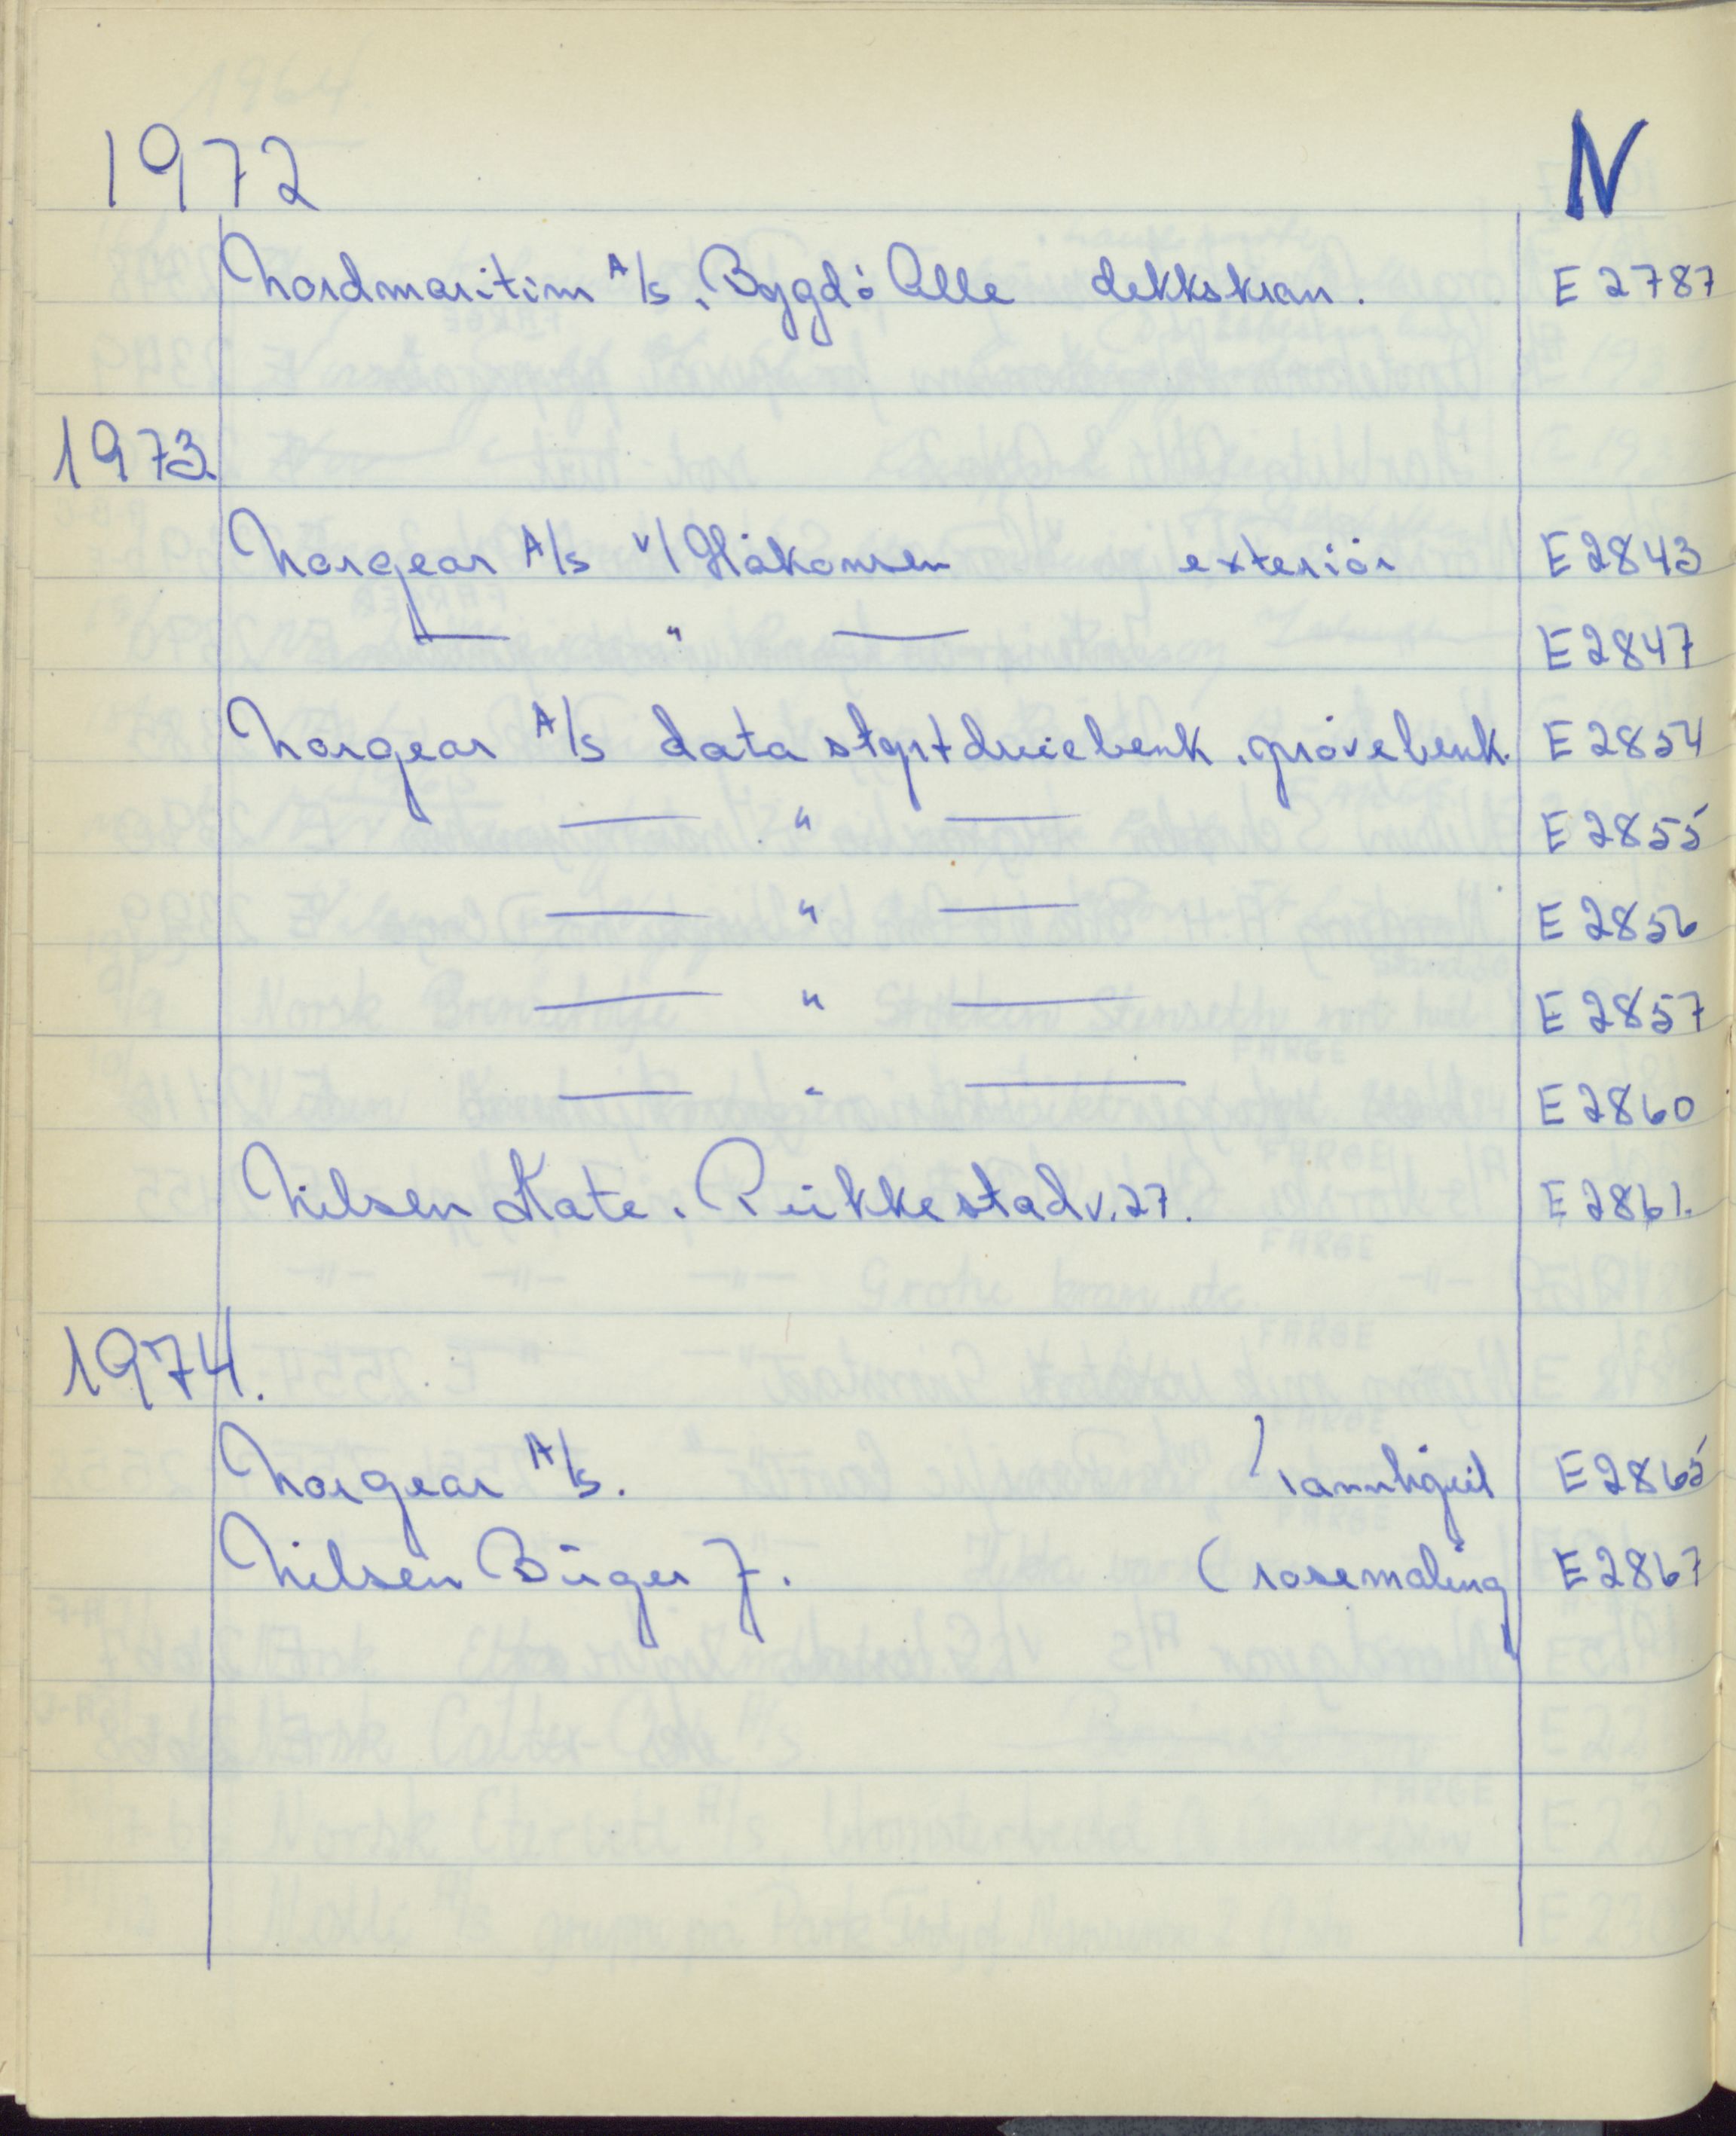 1972 N
Nordmaritim A/s, Bygdö Alle dekkskran. E 2787
1973.
Norgear A/s v/ Håkonsen exteriör E 2843
— " — E 2847
Norgear A/s data styrt dreiebenk, prövebenk. E 2854
— " — E 2855
— " — E 2856
— " — E 2857
— " — E 2860
Nilsen Kate. Reikkestadv. 27. E 2861.
1974.
Norgear A/s. tannhjul E 2865
Nilsen Birger J. (rosemaling E 2867